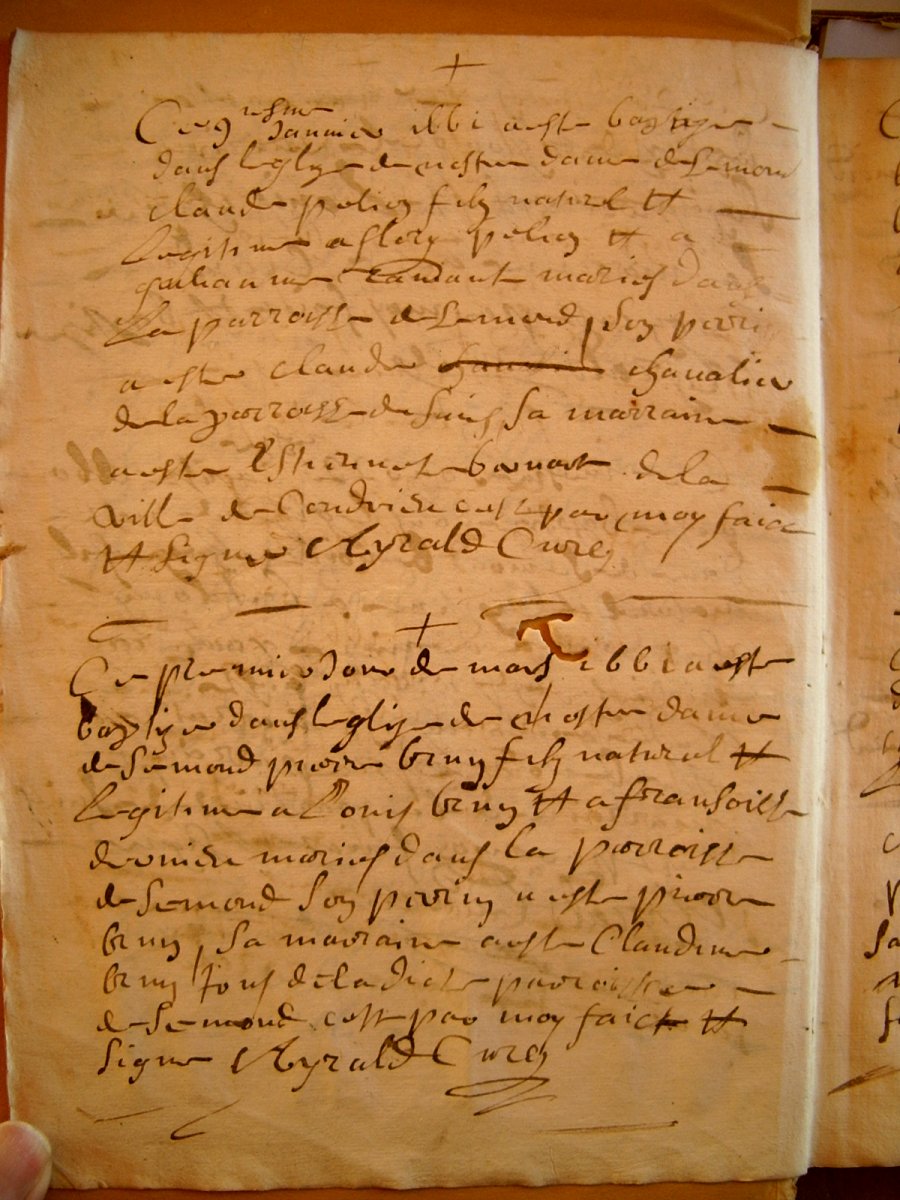 Ce 9 jesme Janvier 1661 a este baptize
dans leglyze de nostre dame de Semond
claude pelion filz naturel et
legitime a flory pelion et a
mariés dans
La parroisse de Semond, Son perrin
a este claude chavalier chavalier
de la parroisse de Sa marraine
a este Estiennete de la
ville de Condrieu cest par moy faict
et signe Ayrald Curé
Ce premier Jour de mars 1661 a este
baptize dans leglize de nostre dame
de Semond pierre brun filz naturel et
legitime a Louis brun et a fransoisse
mariés dans la parroisse
de Semond Son perrin a este pierre
brun, Sa marraine a este Claudine
brun tous de ladicte parroisse
de Semond cest par moy faict et
signe Ayrald Curé